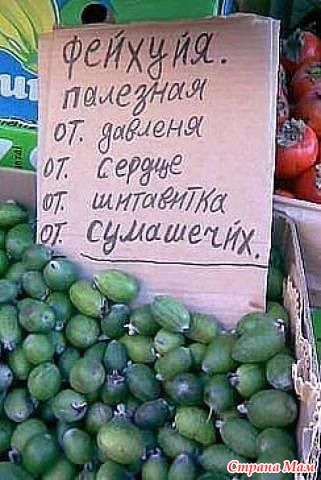 Фейхуйя.
Палезная
от. давленя
от. сердце
от. шитавитка
от. сумашечйх.
Страна Мам